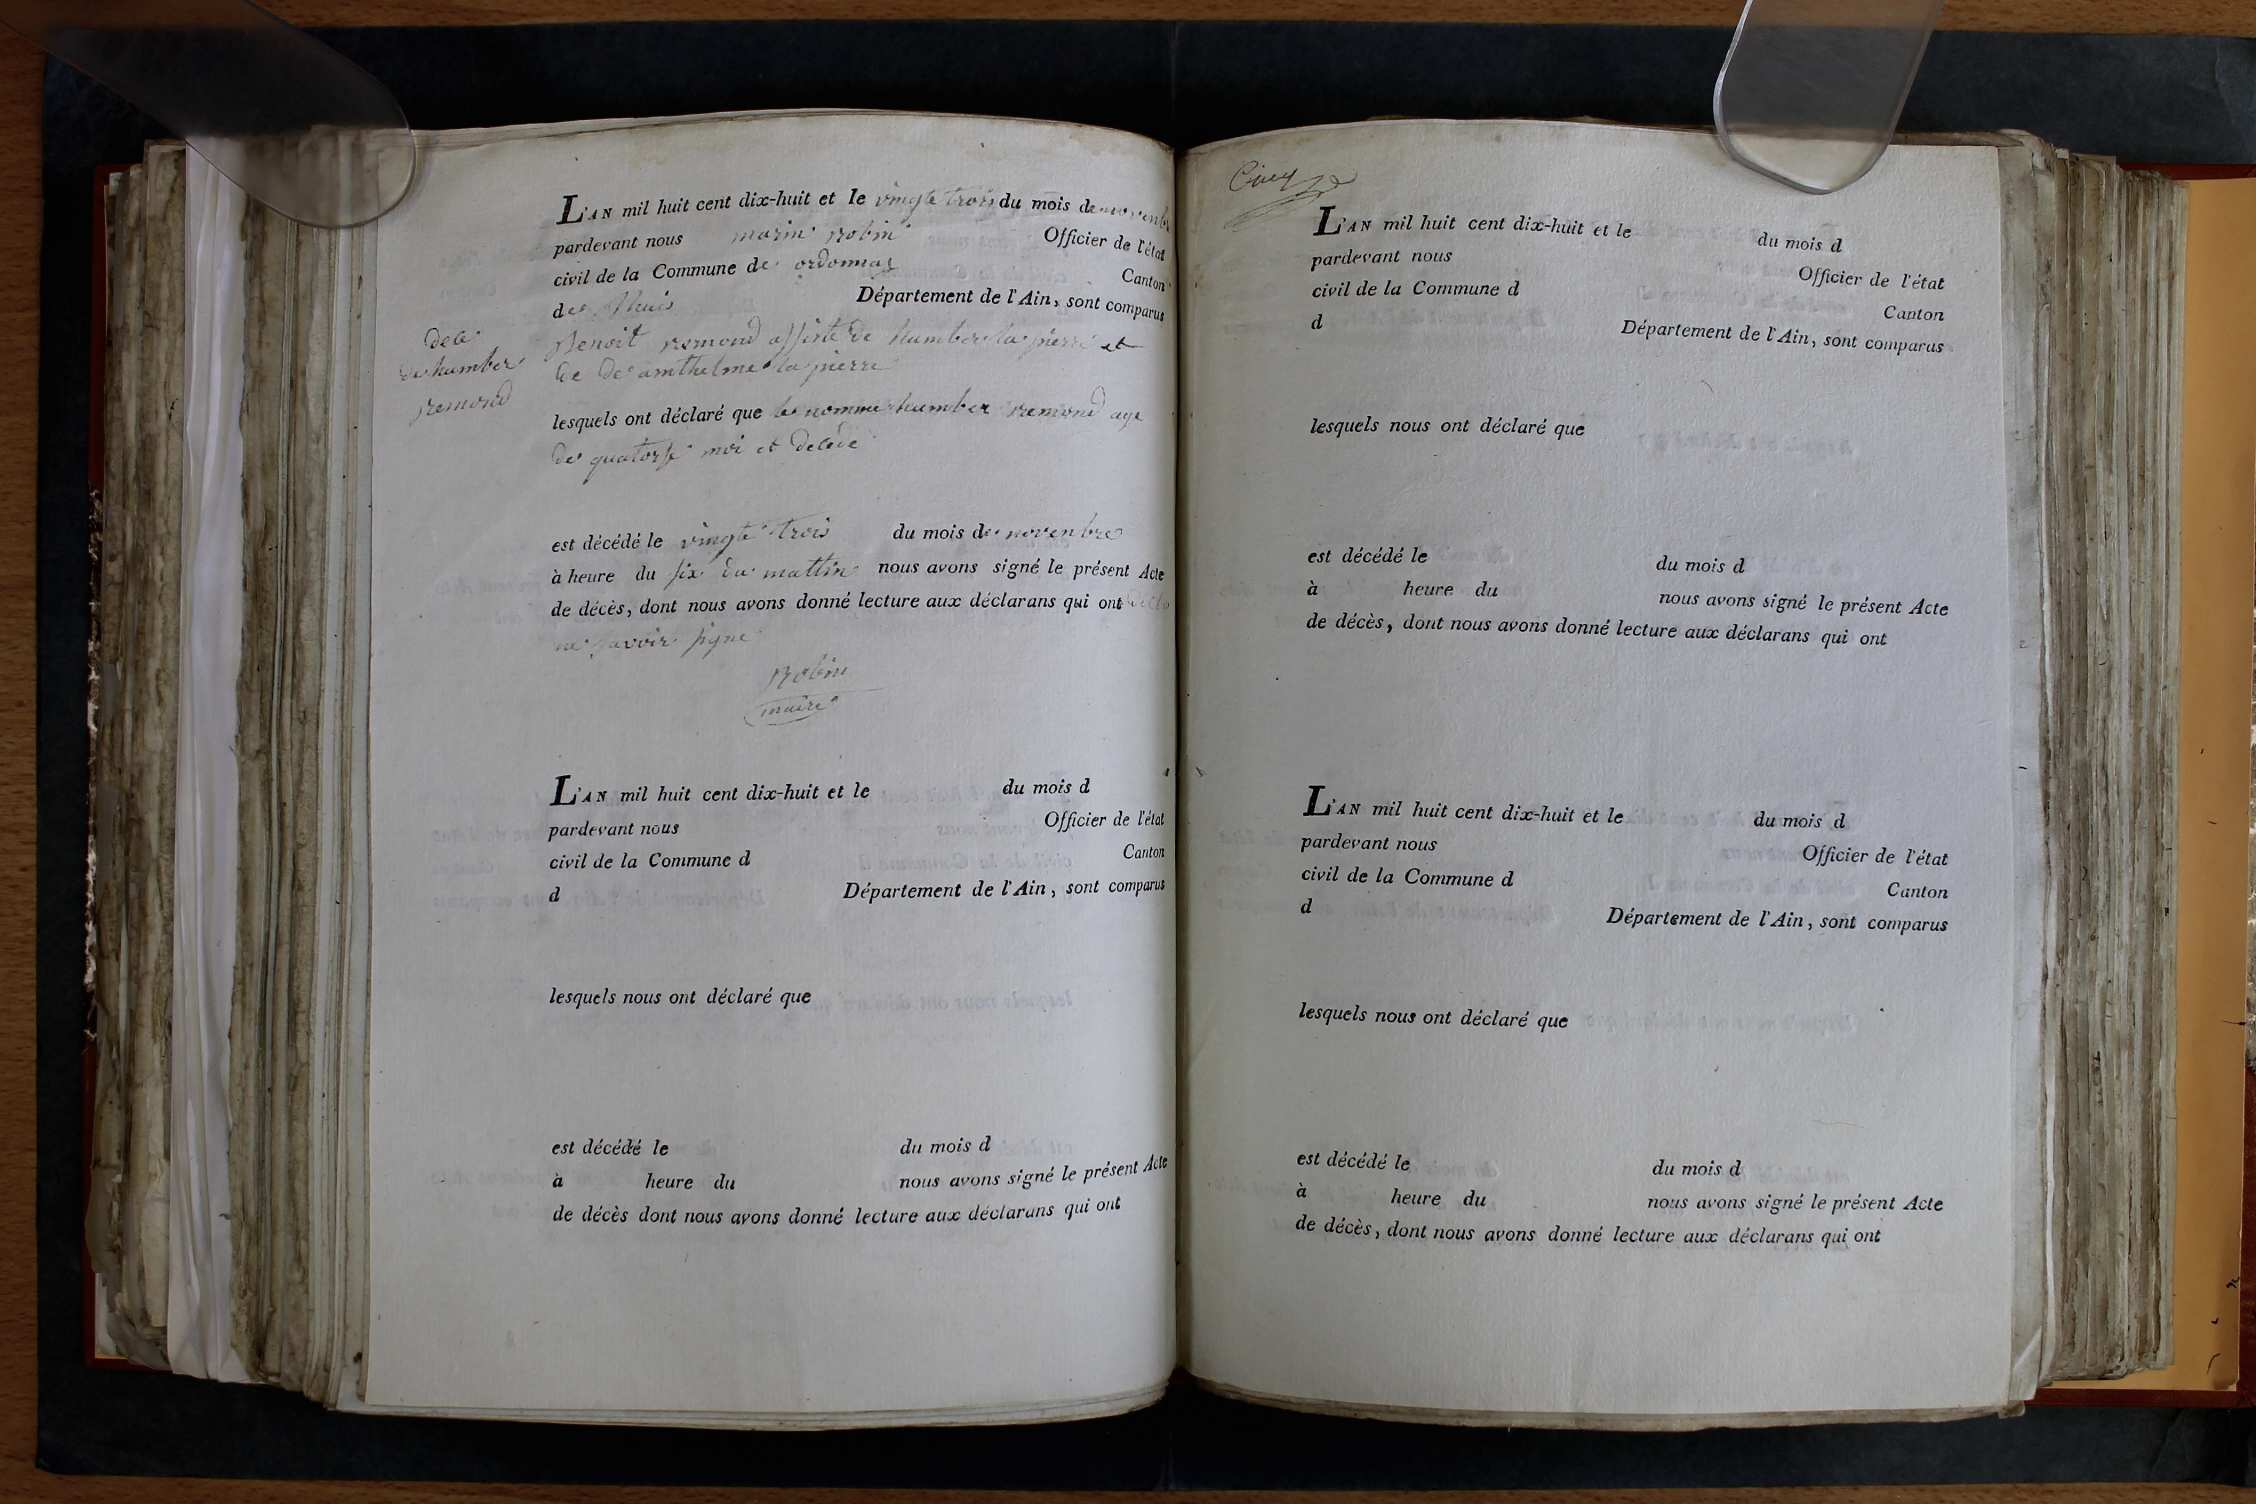 L'AN mil huit cent dix-huit et le vingte trois du mois de novenbre
pardevant nous marin robin Officier de l'état
civil de la Commune de ordonnas Canton
de Lhuis Département de l'Ain, sont comparus
dece
de humber
remond
Benoit remond assiste de humber la pierre et
de de amthelme la pierre
lesquels ont déclaré que le nomme humber remond age
de quatorse moi et decede
est décédé le vingte trois du mois de novenbre
à heure du six du mattin nous avons signé le présent Acte
de décès, dont nous avons donné lecture aux déclarans qui ont
ne savoir signe
Robin
maire
L'AN mil huit cent dix-huit et le du mois d
pardevant nous Officier de l'état
civil de la Commune d Canton
d Département de l'Ain, sont comparus
lesquels nous ont déclaré que
est décédé le du mois d
à heure du nous avons signé le présent Acte
de décès dont nous avons donné lecture aux déclarans qui ont
L'AN mil huit cent dix-huit et le du mois d
pardevant nous Officier de l'état
civil de la Commune d Canton
d Département de l'Ain, sont comparus
lesquels nous ont déclaré que
est décédé le du mois d
à heure du nous avons signé le présent Acte
de décès, dont nous avons donné lecture aux déclarans qui ont
L'AN mil huit cent dix-huit et le du mois d
pardevant nous Officier de l'état
civil de la Commune d Canton
d Département de l'Ain, sont comparus
lesquels nous ont déclaré que
est décédé le du mois d
à heure du nous avons signé le présent Acte
de décès, dont nous avons donné lecture aux déclarans qui ont